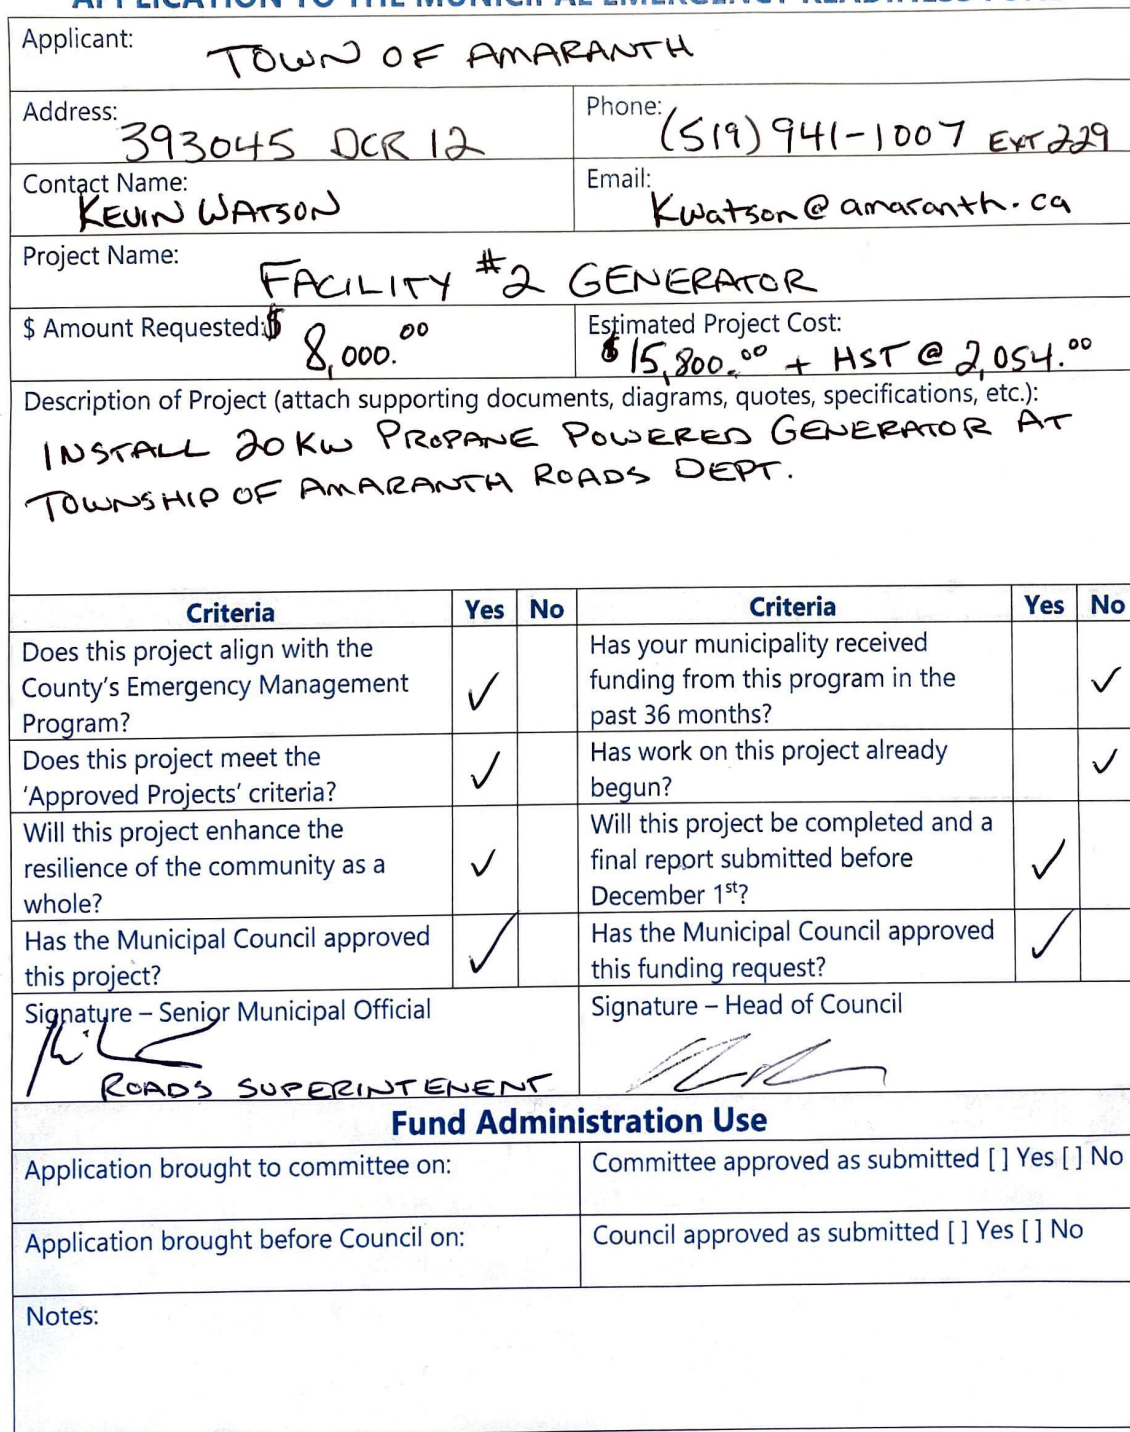 APPLICATION TO THE MUNICIPAL EMERGENCY READINESS FUND
Applicant:
TOWN OF AMARANTH
Address:
393045 DCR 12
Phone:
(519) 941-1007 EXT 229
Contact Name:
KEVIN WATSON
Email:
Kwatson@amaranth.ca
Project Name:
FACILITY #2 GENERATOR
$ Amount Requested: $ 8,000.00
Estimated Project Cost:
$15,800.00 + HST @ 2,054.00
Description of Project (attach supporting documents, diagrams, quotes, specifications, etc.):
INSTALL 20 KW PROPANE POWERED GENERATOR AT
TOWNSHIP OF AMARANTH ROADS DEPT.
Criteria Yes No Criteria Yes No
Does this project align with the
County's Emergency Management
Program? ✓
Has your municipality received
funding from this program in the
past 36 months? ✓
Does this project meet the
'Approved Projects' criteria? ✓
Has work on this project already
begun? ✓
Will this project enhance the
resilience of the community as a
whole? ✓
Will this project be completed and a
final report submitted before
December 1st? ✓
Has the Municipal Council approved
this project? ✓
Has the Municipal Council approved
this funding request? ✓
Signature – Senior Municipal Official
ROADS SUPERINTENENT
Signature – Head of Council
Fund Administration Use
Application brought to committee on:
Committee approved as submitted [ ] Yes [ ] No
Application brought before Council on:
Council approved as submitted [ ] Yes [ ] No
Notes: